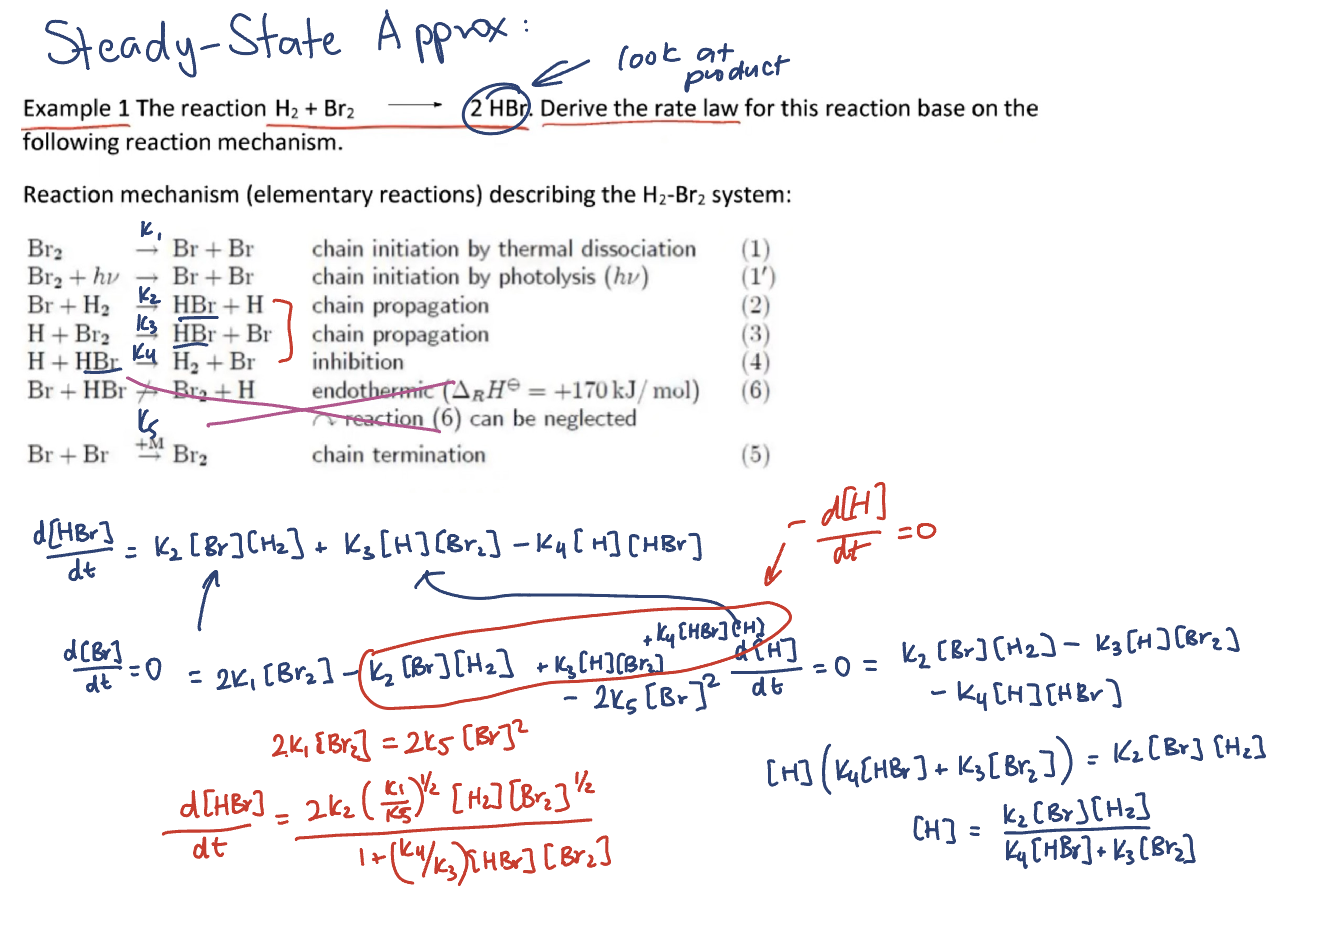 Steady-State Approx:
look at
product
Example 1 The reaction H₂ + Br₂ ⟶ 2 HBr. Derive the rate law for this reaction base on the
following reaction mechanism.
Reaction mechanism (elementary reactions) describing the H₂-Br₂ system:
K₁
Br₂ → Br + Br chain initiation by thermal dissociation (1)
Br₂ + hν → Br + Br chain initiation by photolysis (hν) (1′)
Br + H₂ K₂ → HBr + H chain propagation (2)
H + Br₂ K₃ → HBr + Br chain propagation (3)
H + HBr K₄ → H₂ + Br inhibition (4)
Br + HBr ↛ Br₂ + H endothermic (Δ_R H^⊖ = +170 kJ/mol) (6)
↷ reaction (6) can be neglected
K₅
Br + Br +M → Br₂ chain termination (5)
d[HBr]/dt = K₂[Br][H₂] + K₃[H][Br₂] − K₄[H][HBr]
− d[H]/dt = 0
d[Br]/dt = 0 = 2K₁[Br₂] − K₂[Br][H₂] + K₃[H][Br₂] + K₄[HBr][H] − 2K₅[Br]²
d[H]/dt = 0 = K₂[Br][H₂] − K₃[H][Br₂]
− K₄[H][HBr]
2K₁[Br₂] = 2K₅[Br]²
[H](K₄[HBr] + K₃[Br₂]) = K₂[Br][H₂]
d[HBr]/dt = 2K₂(K₁/K₅)^½ [H₂][Br₂]^½ / 1+(K₄/K₃)[HBr][Br₂]
[H] = K₂[Br][H₂] / K₄[HBr] + K₃[Br₂]